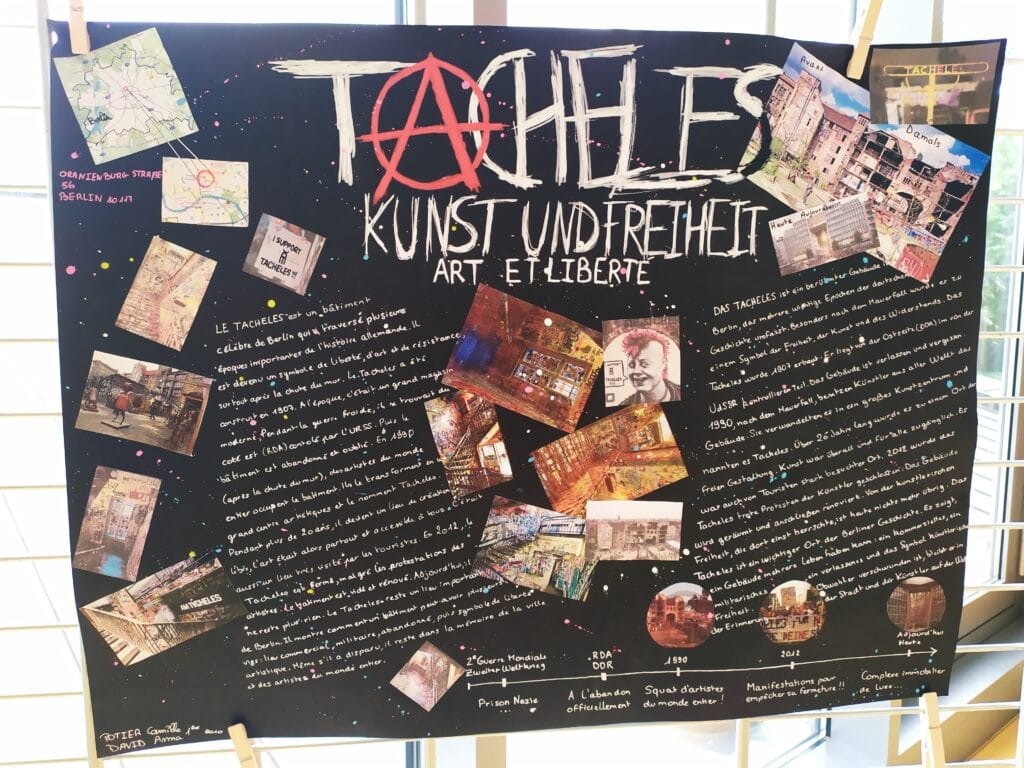 TACHELES
KUNST UND FREIHEIT
ART ET LIBERTE
Berlin
ORANIENBURG STRAßE
56
BERLIN 10117
I SUPPORT
TACHELES !!!
Avant
TACHELES
Damals
Heute Aujourd'hui
LE TACHELES est un bâtiment
célèbre de Berlin qui a traversé plusieurs
époques importantes de l'histoire allemande. Il
est devenu un symbole de liberté, d'art et de résistance
surtout après la chute du mur. Le Tacheles a été
construit en 1907. A l'époque, c'était un grand magasin
moderne. Pendant la guerre froide, il se trouvait du
coté est (RDA) contolé par l'URSS. Puis le
bâtiment est abandonné et oublié. En 1990
(après la chute du mur), des artistes du monde
entier occupent le bâtiment. Ils le transforment en
grand centre artistiques et le nomment Tacheles.
Pendant plus de 20 ans, il devient un lieu de création
libre, l'art était alors partout et accessible à tous. C'
aussi un lieu très visité par les touristes. En 2012, le
Tacheles a fermé, malgré les protestations des
artistes: le bâtiment est vidé et rénové. Aujourd'hui, il
ne reste plus rien. Le Tacheles reste un lieu important
de Berlin. Il montre comment un bâtiment peut avoir plusieurs
vies: lieu commercial, militaire, abandonné, puis symbole de liberté
artistique. Même s'il a disparu, il reste dans la mémoire de la ville
et des artistes du monde entier.
DAS TACHELES ist ein berühmter Gebäude in
Berlin, das mehrere wichtige Epochen der deutschen
Geschichte umfasst. Besonders nach dem Mauerfall wurde er zu
einem Symbol der Freiheit, der Kunst und des Widerstands. Das
Tacheles wurde 1907 erbaut. Er liegt in der Ostzeit (DDR) im von der
UdSSR kontrollierten Teil. Das Gebäude ist verlassen und vergessen
1990, nach dem Mauerfall, besetzen Künstler aus aller Welt das
Gebäude. Sie verwandelten es in ein großes Kunstzentrum und
nannten es Tacheles. Über 20 Jahre lang wurde es zu einem Ort der
freien Gestaltung. Kunst war überall und für alle zugänglich. Es
war auch von Touristen stark besuchter Ort. 2012 wurde das
Tacheles trotz Protesten der Künstler geschlossen: Das Gebäude
wird geräumt und anschließend renoviert. Von der künstlerischen
Freiheit, die dort einst herrschte, ist heute nichts mehr übrig. Das
Tacheles ist ein wichtiger Ort der Berliner Geschichte. Es zeigt,
wie Gebäude mehrere Leben haben kann: ein kommerzieller, ein
militärischer, ein verlassenes und das Symbol künstlerischer
Freiheit. Obwohl er verschwunden ist, bleibt er in
der Erinnerung der Stadt und der Künstler auf der Welt
2e Guerre Mondiale
Zweiter Weltkrieg
RDA
DDR
1990
2012
Aujourd'hui
Heute
Prison Nazie
A l'abandon
officiellement
Squat d'artistes
du monde entier !
Manifestations pour
empêcher sa fermeture !!
Complexe immobilier
de luxe...
POTIER Camille 1ère
DAVID Anna